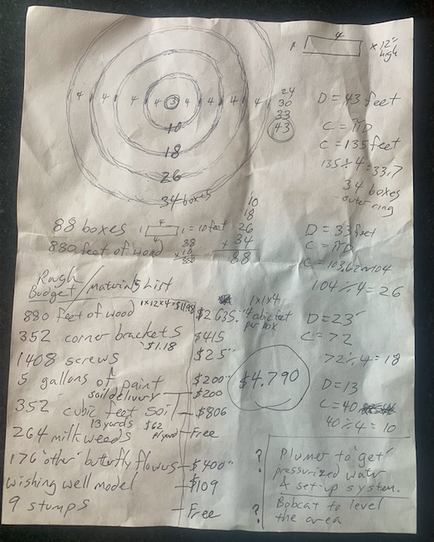 4
1 × 12" high
4 4 4 4 3 4 4 4 4
10
18
26
34 boxes
24
30
33
43
D = 43 feet
C = πD
C = 135 feet
135 ÷ 4 = 33.7
34 boxes
outer ring
10
18
26
× 34
88
88 boxes 1 4 1 = 10 feet
880 feet of wood 88
× 10
880
D = 33 feet
C = πD
C = 103.62 or 104
104 ÷ 4 = 26
D = 23'
C = 72
72 ÷ 4 = 18
D = 13
C = 40
40 ÷ 4 = 10
Rough
Budget / Materials List
1x12x4=$11.98
880 feet of wood $2635. 1x1x4
4 cubic feet
per box
352 corner brackets $415
$1.18
1408 screws $25
5 gallons of paint $200
soil delivery $200
352 cubic feet soil $806
13 yards $62 p/yard
264 milkweeds Free
176 "other" butterfly flowers $400
wishing well model $109
9 stumps Free
$4.790
? Plumer to get
pressurized water
& set-up system.
? Bobcat to level
the area